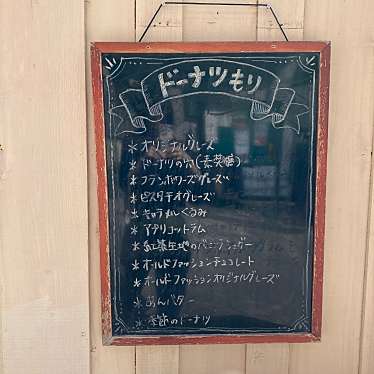 ドーナツもり
* オリジナルグレーズ
* ドーナツの穴(素焚糖)
* フランボワーズグレーズ
* ピスタチオグレーズ
* キャラメルくるみ
* アプリコットラム
* 紅茶生地のバニラシュガー
* オールドファッションチョコレート
* オールドファッションオリジナルグレーズ
* あんバター
* 季節のドーナツ